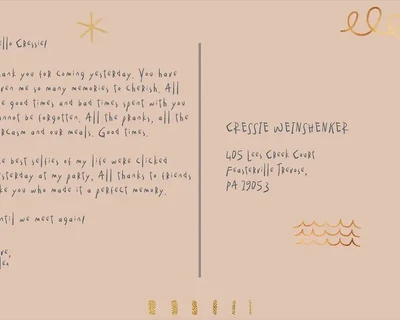 ello Cressie!
ank you for coming yesterday. You have
en me so many memories to cherish. All
e good times and bad times spent with you
nnot be forgotten. All the pranks, all the
rcasm and our meals. Good times.
e best selfies of my life were clicked
sterday at my party. All thanks to friends
ke you who made it a perfect memory.
ntil we meet again!
ve,
CRESSIE WEINSHENKER
405 Lees Creek Court
Feasterville Trevose,
PA 19053